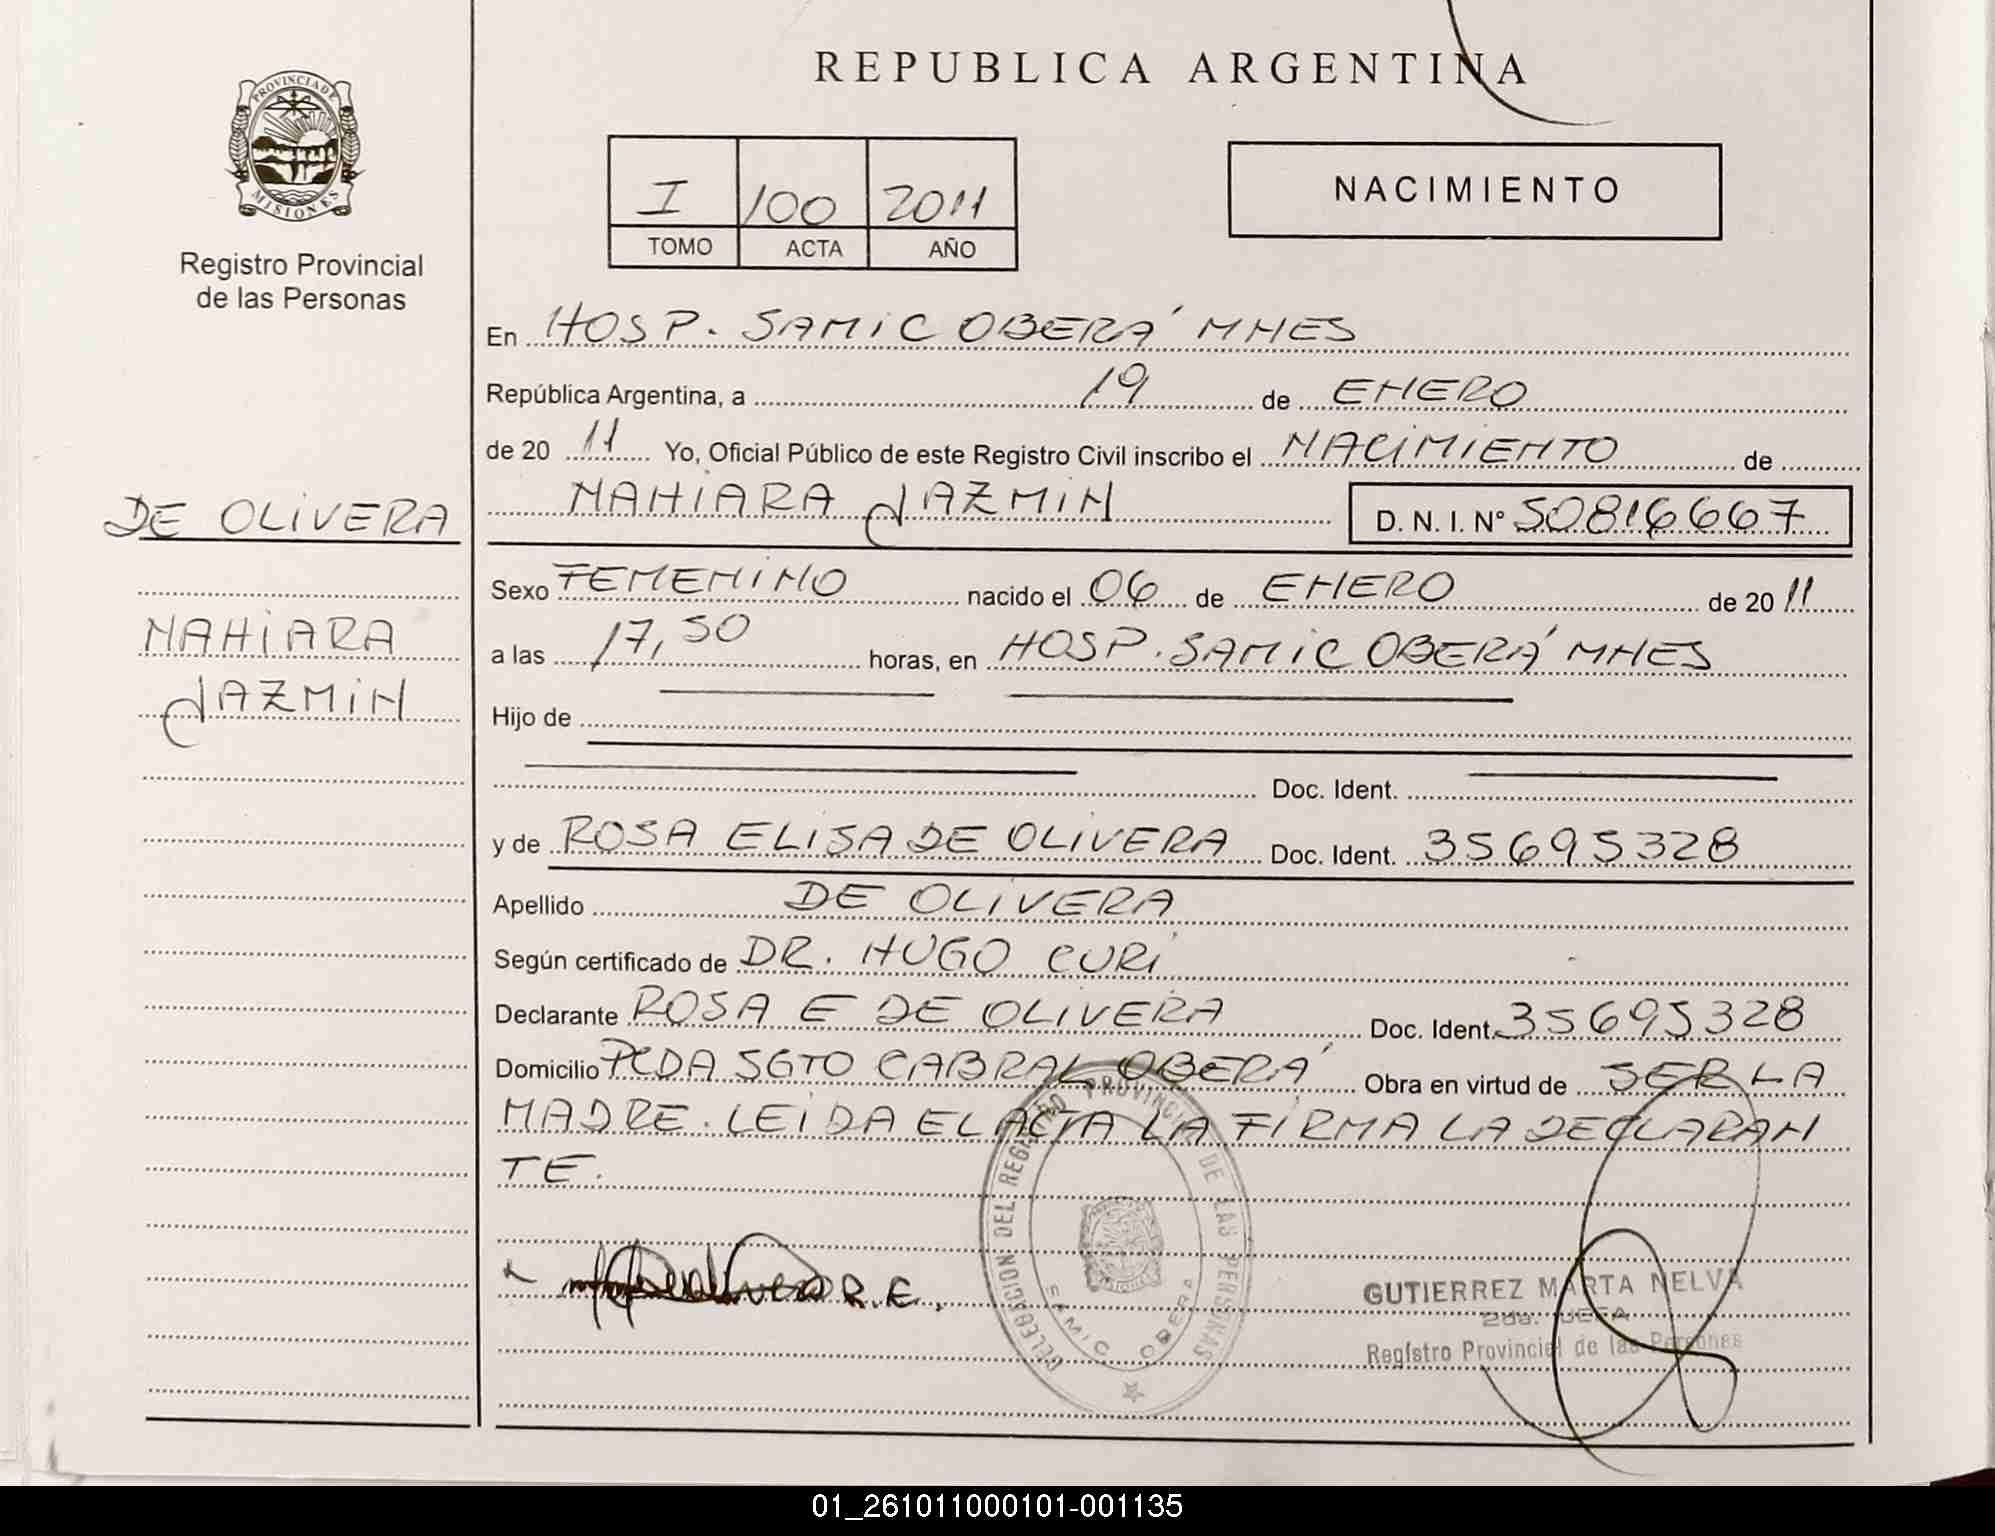 PROVINCIA DE
MISIONES
Registro Provincial
de las Personas
DE OLIVERA
NAHIARA
JAZMIN
REPUBLICA ARGENTINA
I 100 2011
TOMO ACTA AÑO
NACIMIENTO
En HOSP. SAMIC OBERÁ MNES
República Argentina, a 19 de ENERO
de 20 11 Yo, Oficial Público de este Registro Civil inscribo el NACIMIENTO de
NAHIARA JAZMIN D. N. I. N° 50816667
Sexo FEMENINO nacido el 06 de ENERO de 20 11
a las 17,50 horas, en HOSP. SAMIC OBERÁ MNES
Hijo de
Doc. Ident.
y de ROSA ELISA DE OLIVERA Doc. Ident. 35695328
Apellido DE OLIVERA
Según certificado de DR. HUGO CURI
Declarante ROSA E DE OLIVERA Doc. Ident. 35695328
Domicilio PCDA SGTO CABRAL OBERÁ Obra en virtud de SER LA
MADRE. LEIDA EL ACTA LA FIRMA LA DECLARAN
TE.
R.E.
DELEGACION DEL REGISTRO PROVINCIAL DE LAS PERSONAS
SAMIC OBERA
GUTIERREZ MARTA NELVA
2da. JEFA
Registro Provincial de las Personas
01_261011000101-001135